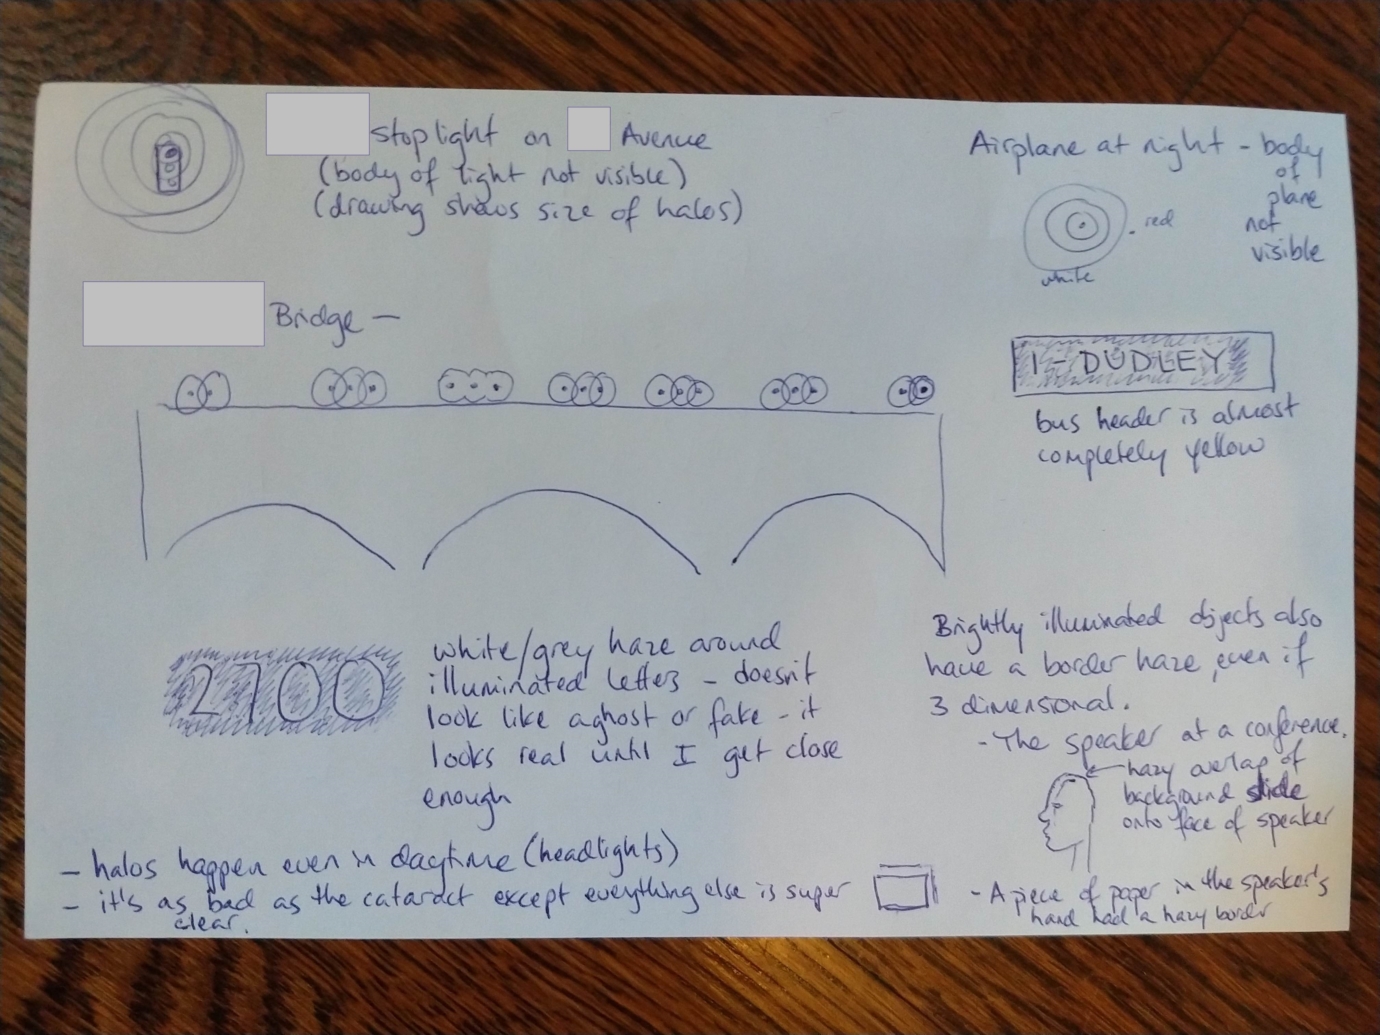 stoplight on Avenue
(body of light not visible)
(drawing shows size of halos)
Airplane at night - body
of
plane
not
visible
red
white
Bridge —
1 - DUDLEY
bus header is almost
completely yellow
2700
white/grey haze around
illuminated letters - doesn't
look like a ghost or fake - it
looks real until I get close
enough
Brightly illuminated objects also
have a border haze, even if
3 dimensional.
- The speaker at a conference.
hazy overlap of
background slide
onto face of speaker
- A piece of paper in the speaker's
hand had a hazy border
- halos happen even in daytime (headlights)
- it's as bad as the cataract except everything else is super
clear.